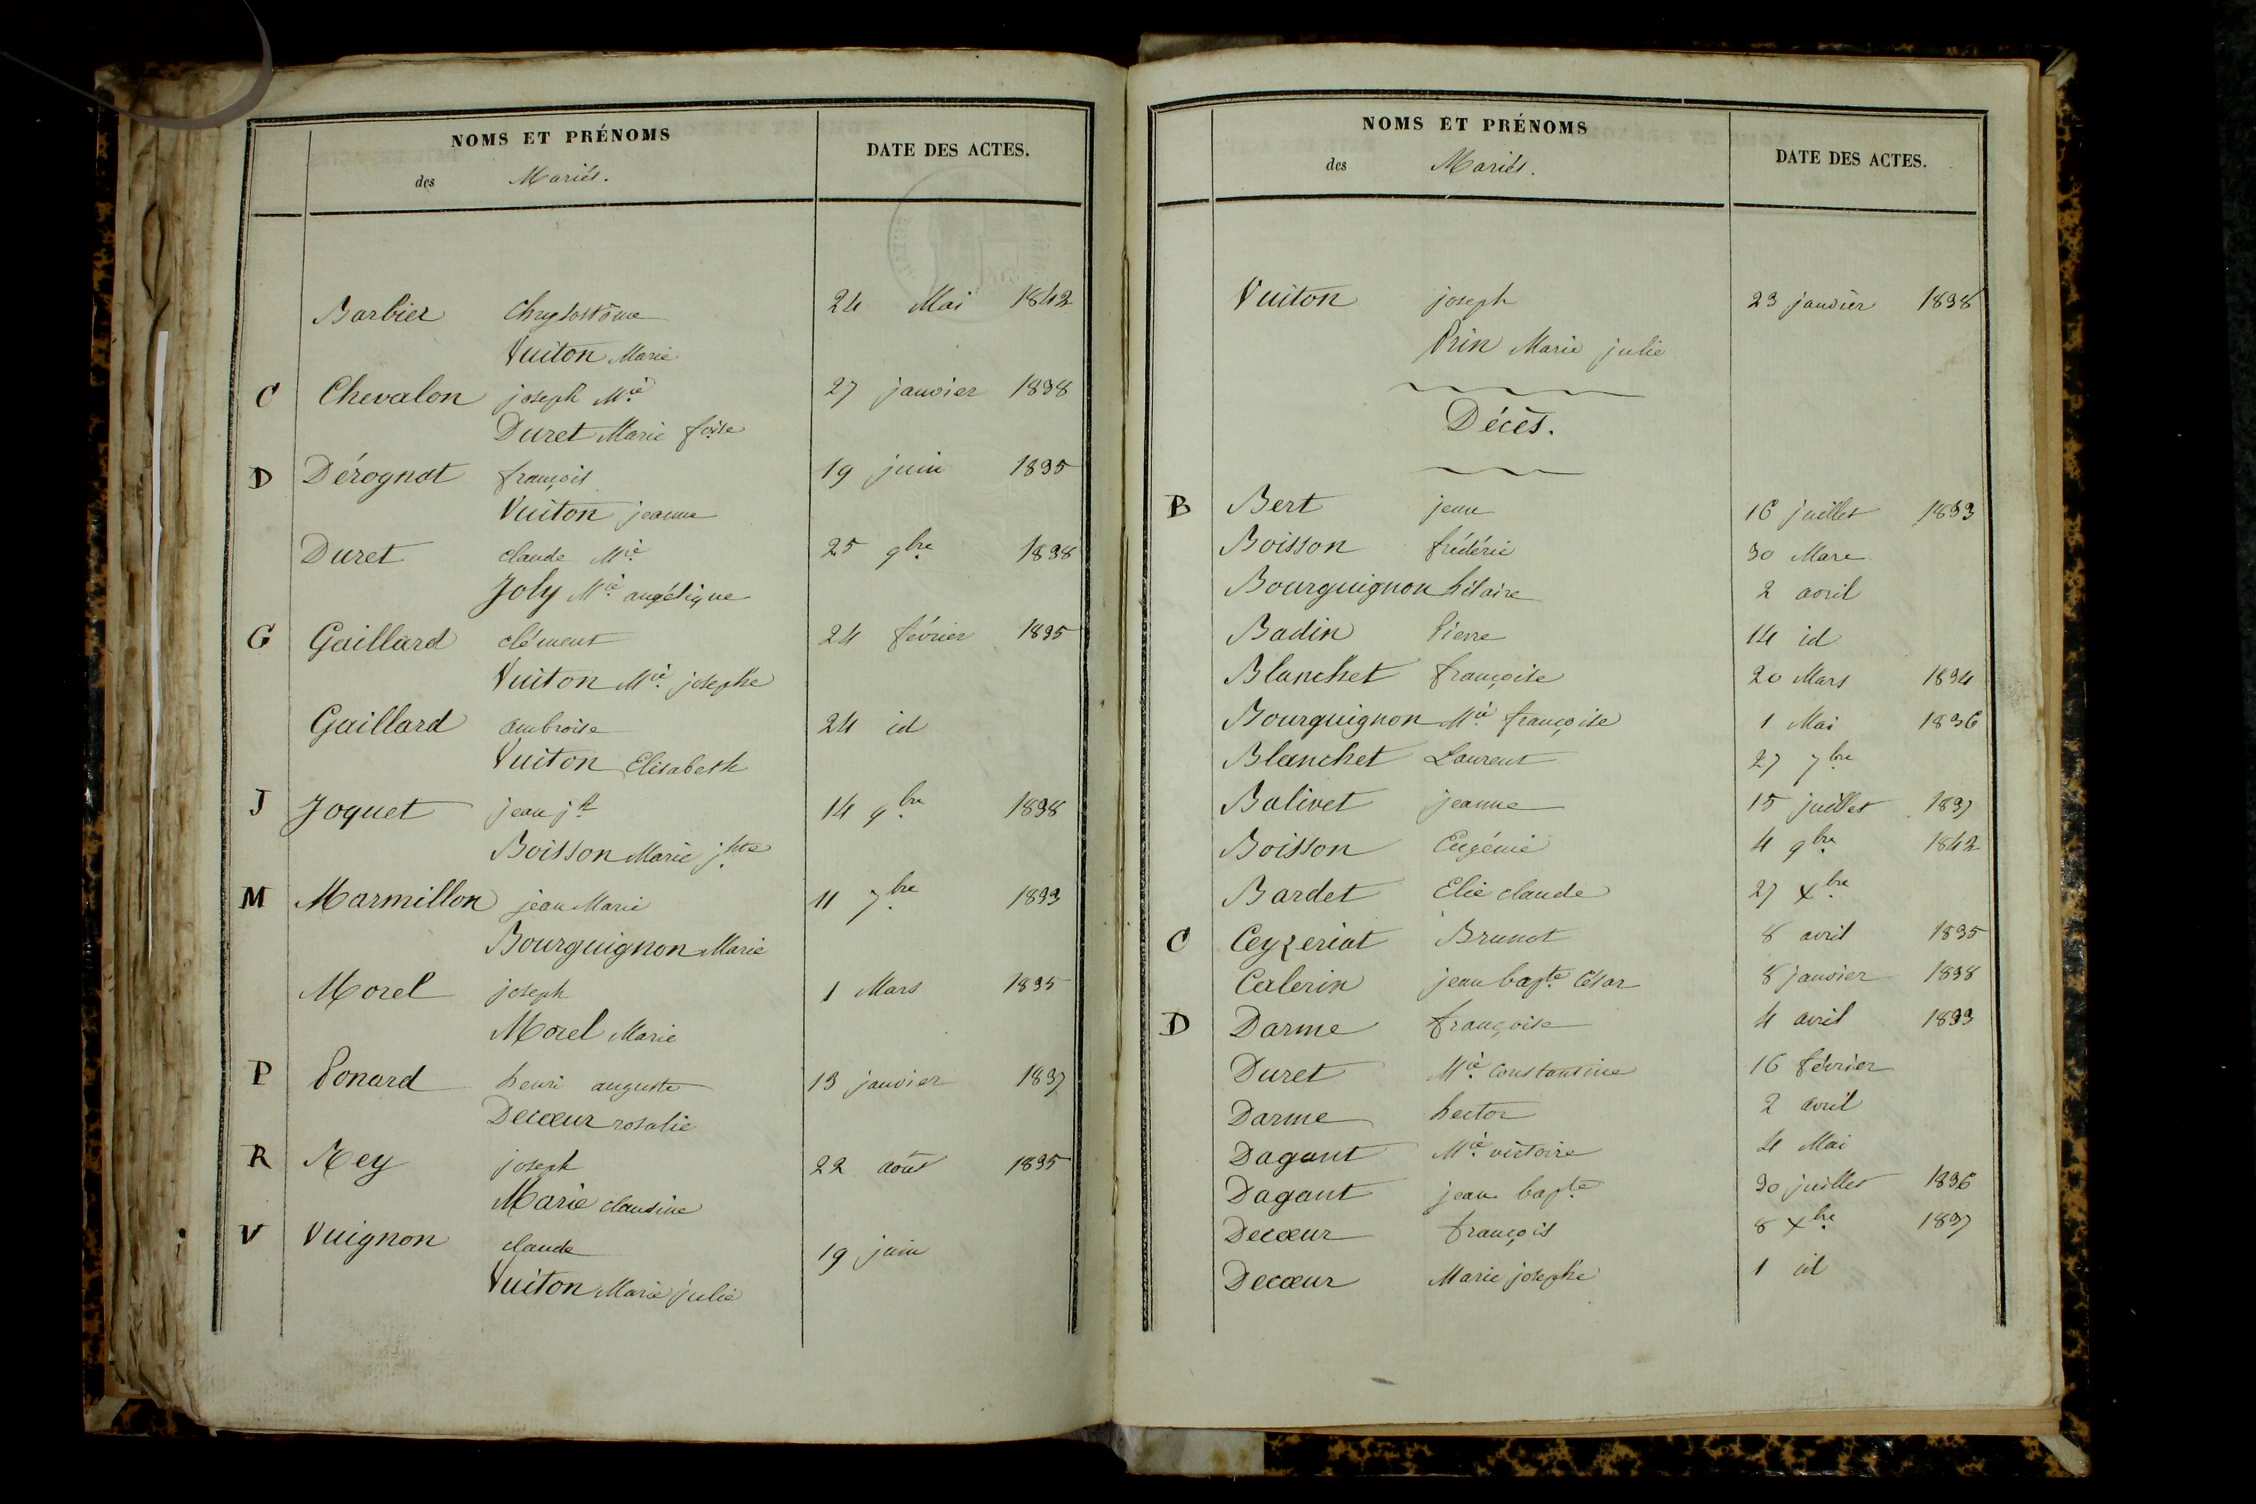 NOMS ET PRÉNOMS
des Mariés.
DATE DES ACTES.
Barbier Chrysostôme 24 Mai 1842
Vuiton Marie
C Chevalon joseph Mie 27 janvier 1838
Duret Marie foise
D Dérognat françois 19 juin 1835
Vuiton jeanne
Duret claude Mie 25 9bre 1838
Joly Mie angélique
G Gaillard clément 24 février 1835
Vuiton Mie josephe
Gaillard ambroise 24 id
Vuiton Elisabeth
J Joquet jean jh 14 9bre 1838
Boisson Marie jhte
M Marmillon jean Marie 11 7bre 1833
Bourguignon Marie
Morel joseph 1 Mars 1835
Morel Marie
P Ponard henri auguste 13 janvier 1837
Decœur rosalie
R Rey joseph 22 août 1835
Marie claudine
V Vuignon claude 19 juin
Vuiton Marie julie
NOMS ET PRÉNOMS
des Mariés.
DATE DES ACTES.
Vuiton joseph 23 janvier 1838
Prin Marie julie
Décès.
B Bert jean 16 juillet 1833
Boisson frédéric 30 Mars
Bourguignon hilaire 2 avril
Badin Pierre 14 id
Blanchet françoise 20 Mars 1834
Bourguignon Mie françoise 1 Mai 1836
Blanchet Laurent 27 7bre
Balivet jeanne 15 juillet 1837
Boisson Eugénie 4 9bre 1842
Bardet Elie claude 27 Xbre
C Ceyzeriat Brunot 8 avril 1835
Calerin jean bapte César 8 janvier 1838
D Darme françoise 4 avril 1833
Duret Mie Constantine 16 février
Darme hector 2 avril
Dagant Mie victoire 4 Mai
Dagant jean bapte 30 juillet 1836
Decœur françois 8 Xbre 1837
Decœur Marie josephe 1 id